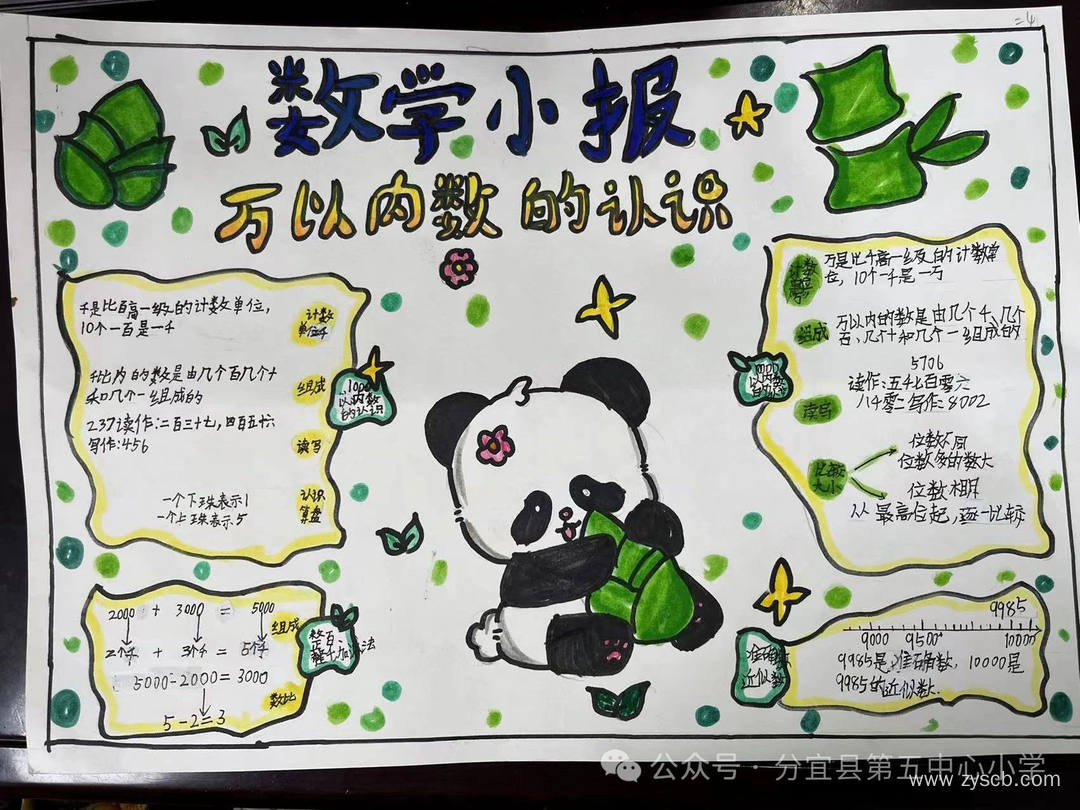 二4
数学小报
万以内数的认识
千是比百高一级的计数单位,
10个一百是一千
计数
单位千
千比内的数是由几个百几个十
和几个一组成的
组成
237读作:二百三十七,四百五十六
写作:456
读写
一个下珠表示1
一个上珠表示5
认识
算盘
1000
以内数
的认识
万是比千高一级的计数单
位,10个一千是一万
计数
万以内的数是由几个千、几个
百、几个十和几个一组成的
组成
5706
读作:五千七百零六
八千零二写作:8002
读写
位数不同
位数多的数大
比较
大小
位数相同
从最高位起,逐一比较
2000 + 3000 = 5000
组成
2个千 + 3个千 = 5个千
5000-2000=3000
数比
5-2=3
整百、
整千加减法
9985
9000 9500 10000
9985是准确数,10000是
9985的近似数.
准确数
近似数
公众号·分宜县第五中心小学
www.zyscb.com